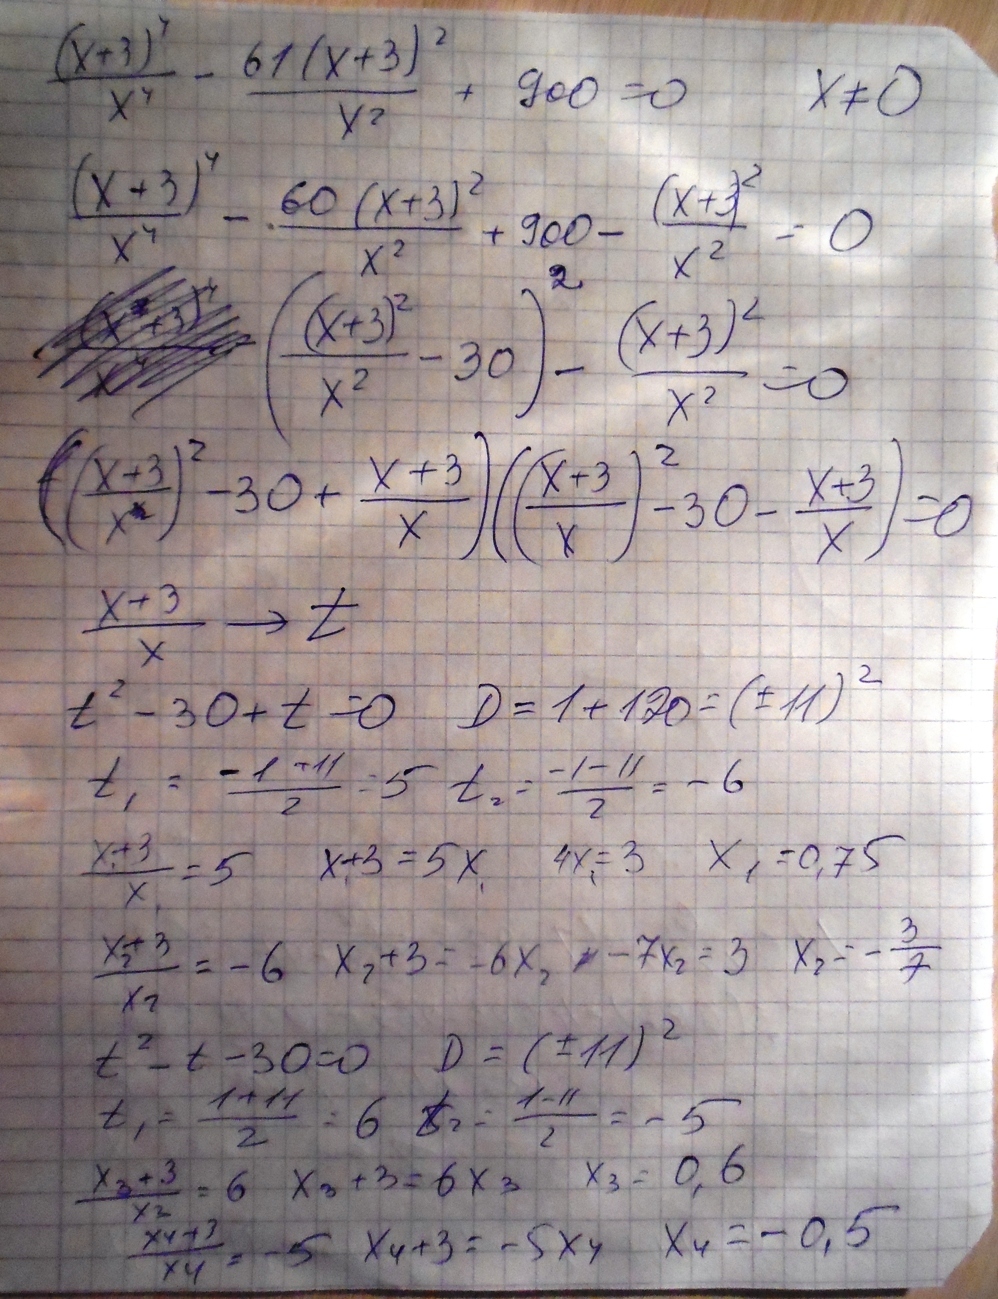 (x+3)⁴/x⁴ - 61(x+3)²/x² + 900 = 0   x ≠ 0
(x+3)⁴/x⁴ - 60(x+3)²/x² + 900 - (x+3)²/x² = 0
((x+3)²/x² - 30)² - (x+3)²/x² = 0
(((x+3)/x)² - 30 + (x+3)/x)(((x+3)/x)² - 30 - (x+3)/x) = 0
(x+3)/x → t
t² - 30 + t = 0   D = 1 + 120 = (±11)²
t₁ = (-1+11)/2 = 5   t₂ = (-1-11)/2 = -6
(x₁+3)/x₁ = 5   x₁+3 = 5x₁   4x₁ = 3   x₁ = 0,75
(x₂+3)/x₂ = -6   x₂+3 = -6x₂   -7x₂ = 3   x₂ = -3/7
t² - t - 30 = 0   D = (±11)²
t₁ = (1+11)/2 = 6   t₂ = (1-11)/2 = -5
(x₃+3)/x₂ = 6   x₃+3 = 6x₃   x₃ = 0,6
(x₄+3)/x₄ = -5   x₄+3 = -5x₄   x₄ = -0,5